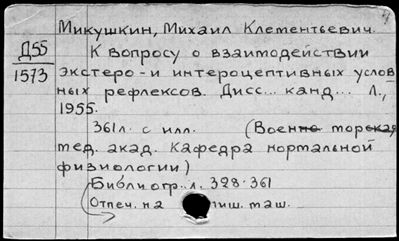 Микушкин, Михаил Клементьевич.
Д55
1573
К вопросу о взаимодействии
экстеро-и интероцептивных услов
ных рефлексов. Дисс... канд... Л.,
1955.
361л. с илл. (Военно морская
мед. акад. Кафедра нормальной
физиологии.)
Библиогр. л. 328-361
Отпеч. на пиш. маш.